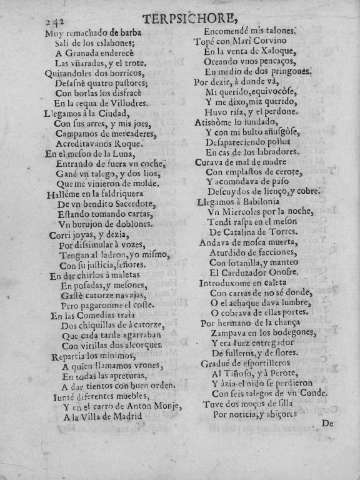 242
TERPSICHORE,
Muy remachado de barba
Sali de los eslabones;
A Granada enderecè
Las vñaradas, y el trote.
Quitandoles dos borricos,
Desasnè quatro pastores;
Con borlas los disfracè
En la cequa de Villodres.
Llegamos à la Ciudad,
Con sus arres, y mis jaes,
Campamos de mercaderes,
Acreditavanos Roque.
En el meson de la Luna,
Entrando de fuera vn coche,
Ganè vn talego, y dos lios,
Que me vinieron de molde.
Hallème en la faldriquera
De vn bendito Sacerdote,
Estando tomando cartas,
Vn burujon de doblones.
Corri joyas, y dezia,
Por dissimular à vozes,
Tengan al ladron, yo mismo,
Con su justicia, señores.
En dar chirlos à maletas
En posadas, y mesones,
Gastè catorze navajas,
Pero pagaronme el coste.
En las Comedias traìa
Dos chiquillas de à catorze,
Que cada tarde agarravan
Con vitillas dos alcorques.
Repartia los minimos,
A quien llamamos vrones,
En todas las apreturas,
A dar tientos con buen orden.
Juntè diferentes muebles,
Y en el carro de Anton Monje,
A la Villa de Madrid
Encomendè mis talones.
Topè con Mari Corvino
En la venta de Xaloque,
Oceando vnos pencaços,
En medio de dos pringones.
Por dezir, à donde và,
Mi querido, equivocòse,
Y me dixo, miz querido,
Huvo risa, y el perdone.
Atisbòme lo fundado,
Y con mi bulto añusgòse,
Desapareciendo pollos
En cas de los labradores.
Curava de mal de madre
Con emplastos de cerote,
Y acomodava de paso
Descuydos de lienço, y cobre.
Llegamos à Babilonia
Vn Miercoles por la noche,
Tendi raspa en el meson
De Catalina de Torres.
Andava de mosca muerta,
Aturdido de facciones,
Con sotanilla, y manteo
El Carduzador Onofre.
Introduxome en caleta
Con cartas de no sè donde,
O el achaque dava lumbre,
O cobrava de ellas portes.
Por hermano de la chança
Zampava en los bodegones,
Y era Juez entregador
De fulleros, y de flores.
Graduè de esportilleros
Al Tiñoso, y à Perote,
Y àzia el nido se perdieron
Con seis talegos de vn Conde.
Tuve dos moços de silla
Por noticia, y abiçores
De